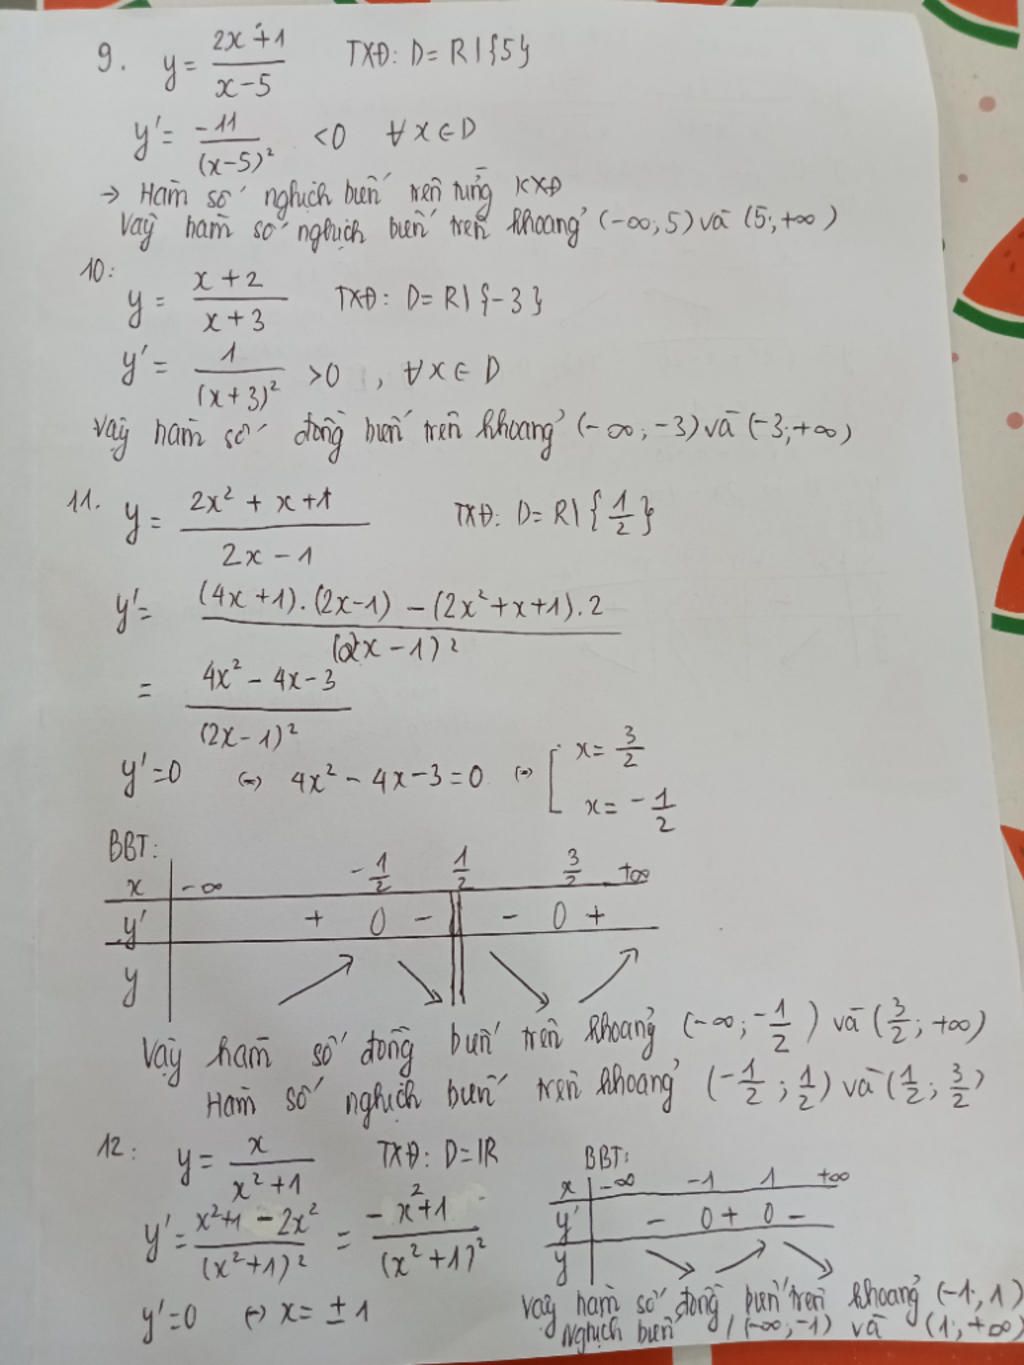 9. y = (2x+1)/(x-5) TXĐ: D = R\{5}
y' = -11/(x-5)² <0 ∀x∈D
→ Hàm số nghịch biến trên từng KXĐ
Vậy hàm số nghịch biến trên khoảng (-∞;5) và (5;+∞)
10: y = (x+2)/(x+3) TXĐ: D = R\{-3}
y' = 1/(x+3)² >0, ∀x∈D
Vậy hàm số đồng biến trên khoảng (-∞;-3) và (-3;+∞)
11. y = (2x²+x+1)/(2x-1) TXĐ: D = R\{1/2}
y' = ((4x+1).(2x-1) - (2x²+x+1).2)/(2x-1)²
= (4x²-4x-3)/(2x-1)²
y'=0 (=) 4x²-4x-3=0 (=) [ x = 3/2
x = -1/2
BBT:
x -∞ -1/2 1/2 3/2 +∞
y' + 0 - || - 0 +
y ↗ ↘ || ↘ ↗
Vậy hàm số đồng biến trên khoảng (-∞;-1/2) và (3/2;+∞)
Hàm số nghịch biến trên khoảng (-1/2;1/2) và (1/2;3/2)
12: y = x/(x²+1) TXĐ: D = ℝ
y' = (x²+1-2x²)/(x²+1)² = (-x²+1)/(x²+1)²
y'=0 (=) x = ±1
BBT:
x -∞ -1 1 +∞
y' - 0 + 0 -
y ↘ ↗ ↘
Vậy hàm số đồng biến trên khoảng (-1;1)
Nghịch biến (-∞;-1) và (1;+∞)